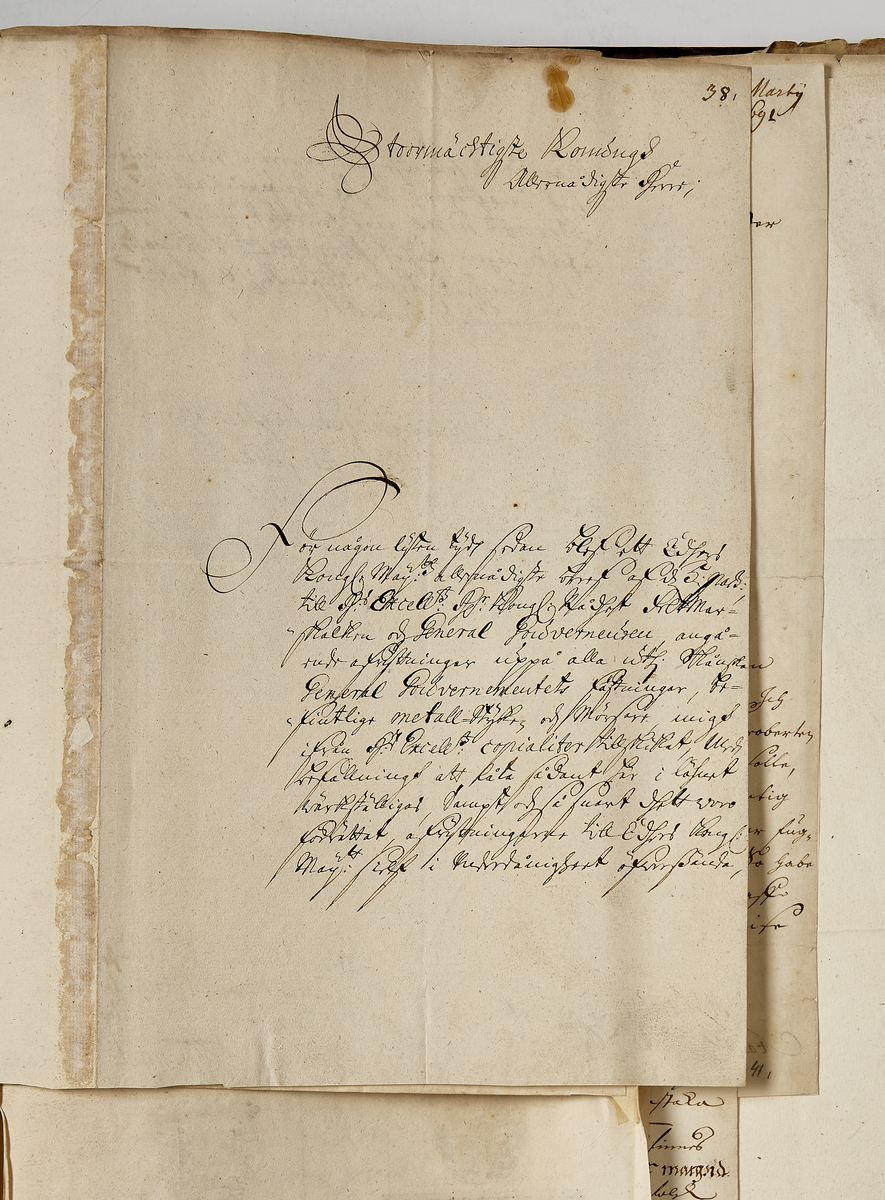 38.
Stoormächtigste Konungh
Allernådigste Herre;
För någon lijten tijdh sedan blef ett Edhers
Kongl. Maij:tz allernådigste bref af d. 5. Martij
till H:s Excell:ce H:r Kongl. Rådhet Feltmar=
skalken och General Gouverneuren, angå=
ende afrijtningar uppå alla uthj Skånska
General Gouvernementets fästningar, be=
fintlige metall-stycken och Mörsare, migh
ifrån H:s Excell:ce copialiter tillskickat, Medh
befallningh att låta sådant här i låhnet
wärckställigas, Sampt och så snart dhett woro
förrättat, afrijtningarne till Edhers Kongl.
Maij:tt sielf i Underdånigheet öfwersända,
Martij
691
ter
Ich
roberten
solle,
tig
er füg=
habe
41,
staka
finnes